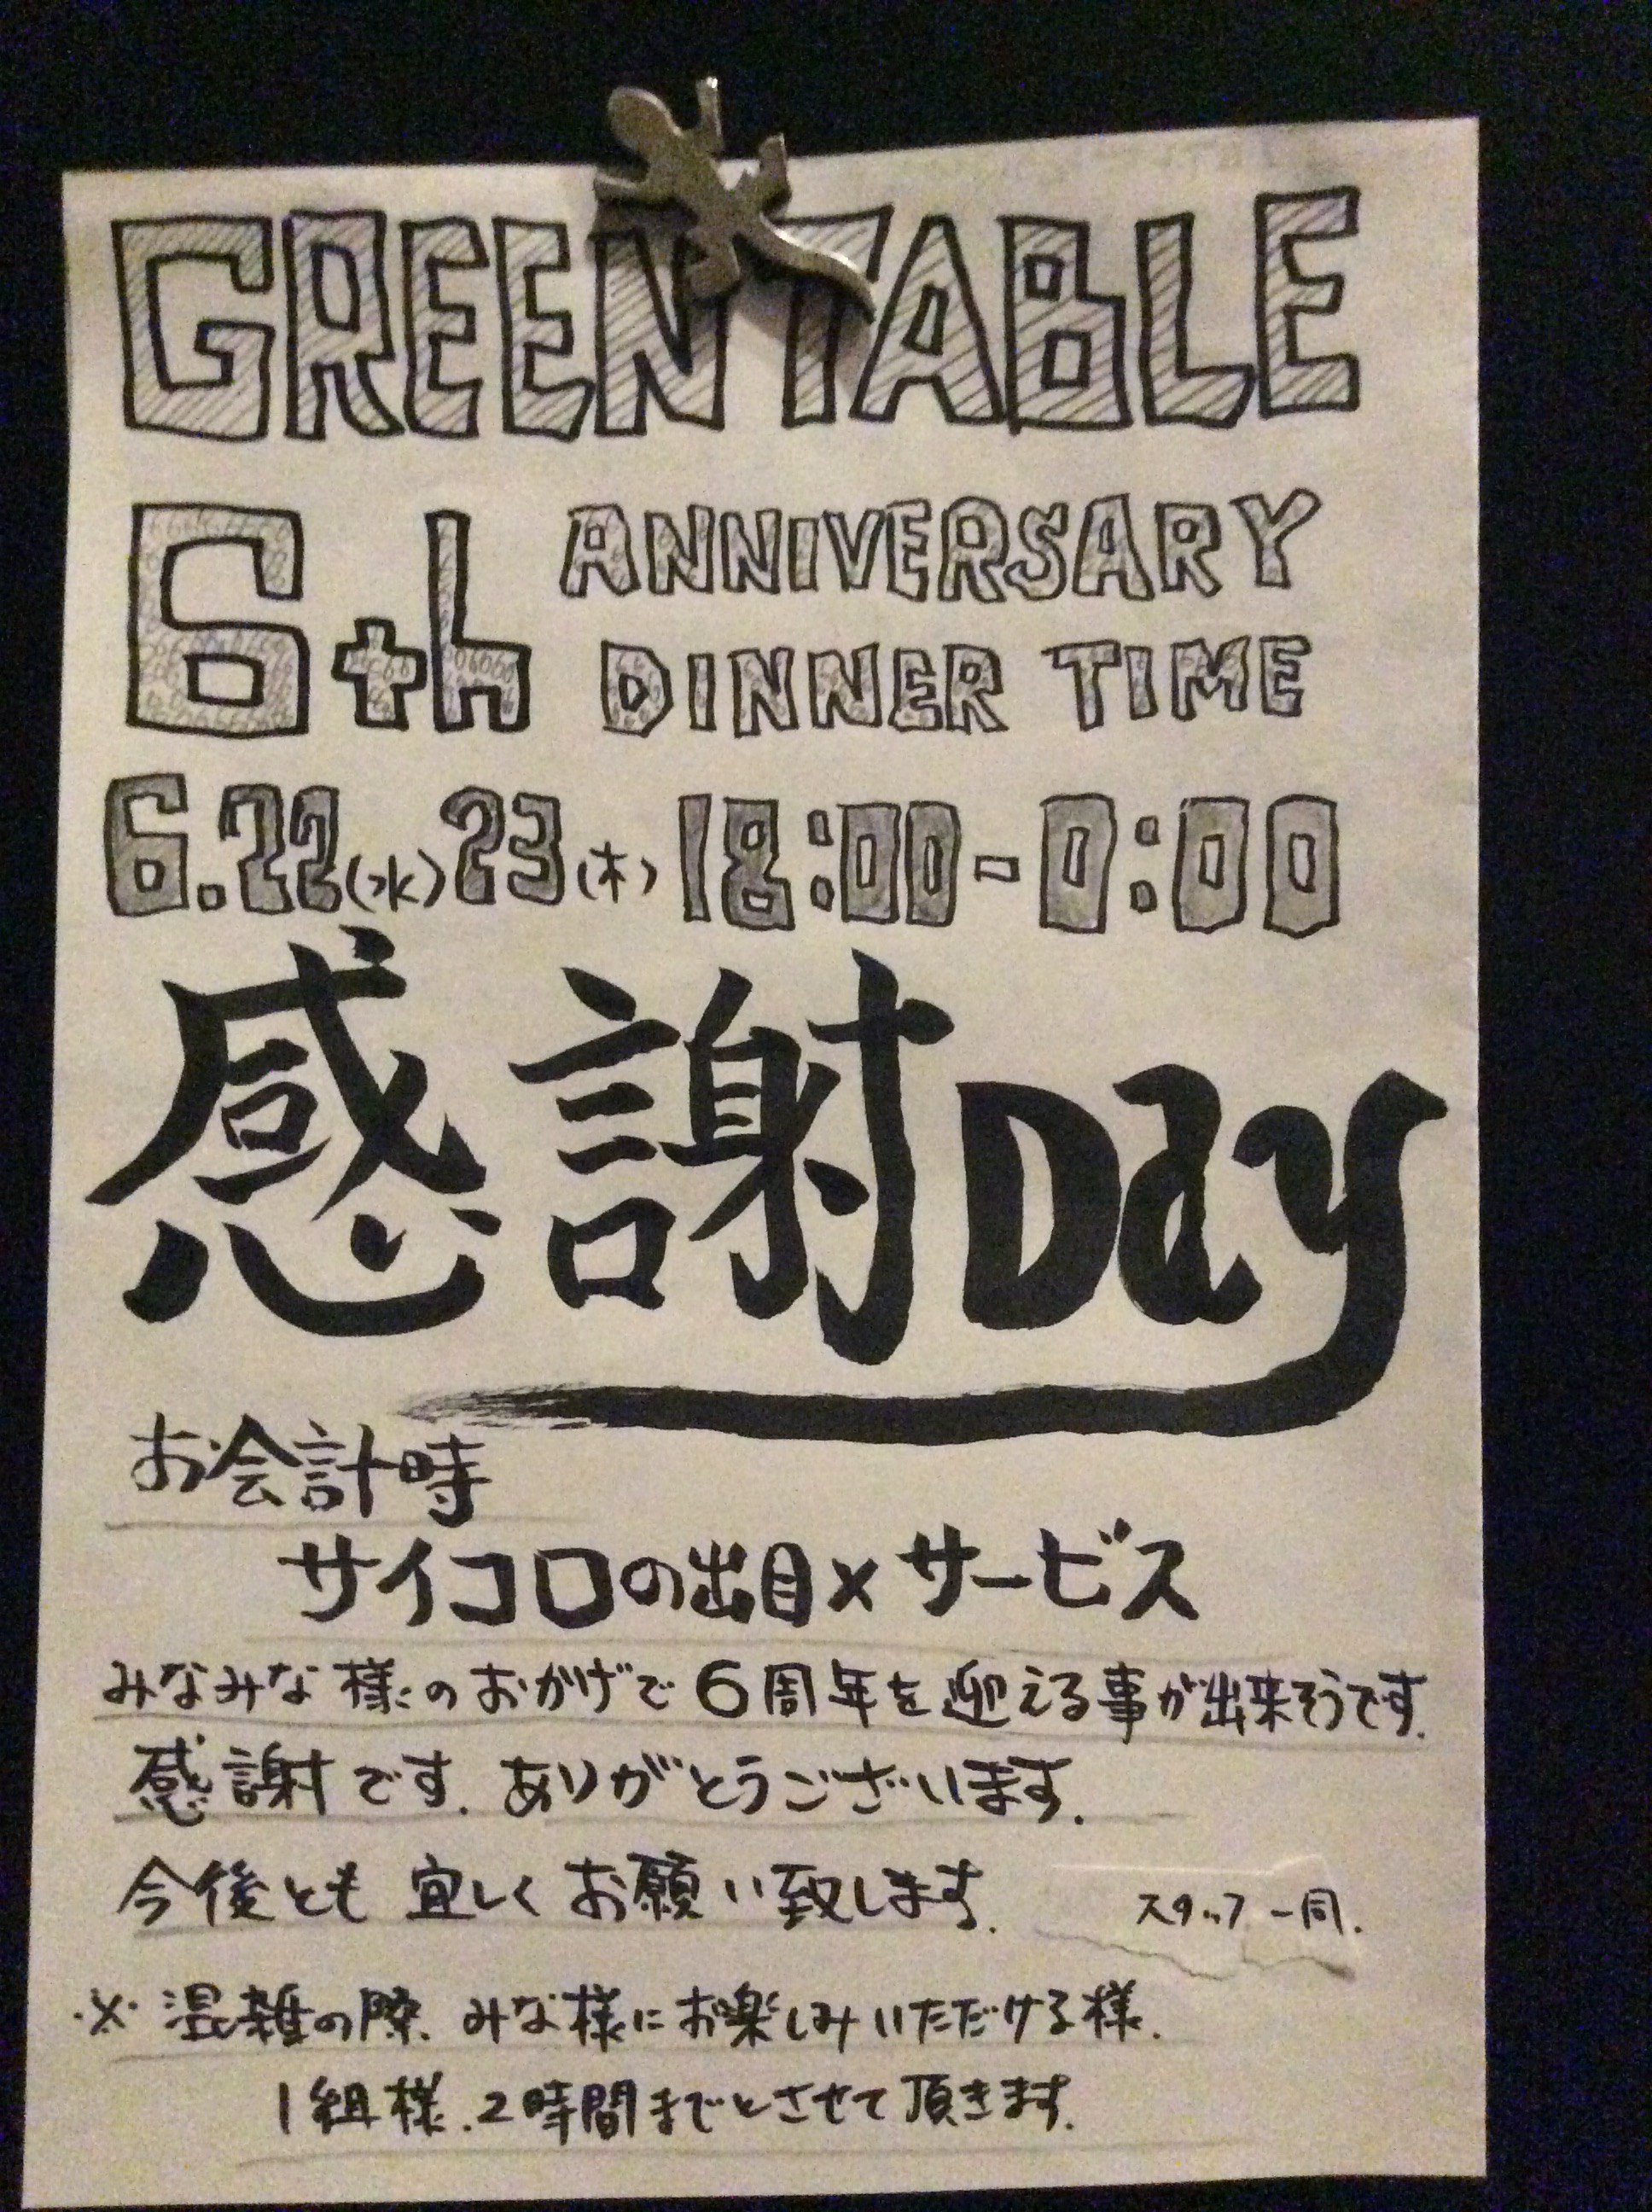 GREEN TABLE
6th ANNIVERSARY
DINNER TIME
6.22(水)23(木) 18:00-0:00
感謝Day
お会計時
サイコロの出目×サービス
みなみな様のおかげで6周年を迎える事が出来そうです.
感謝です. ありがとうございます.
今後とも 宜しく お願い致します. スタッフ一同.
※ 混雑の際. みな様にお楽しみいただける様.
1組様. 2時間までとさせて頂きます.